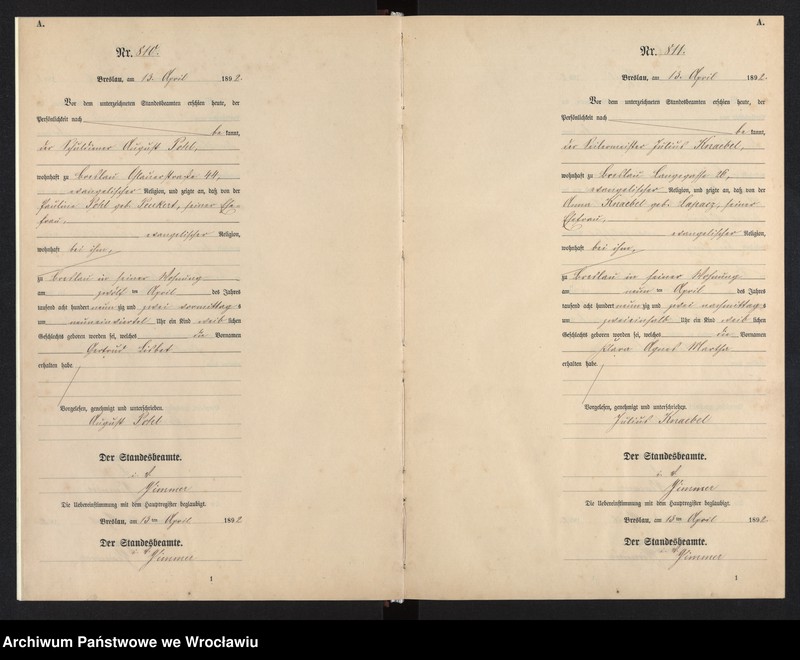 A.
Nr. 810.
Breslau, am 13. April 1892.
Vor dem unterzeichneten Standesbeamten erschien heute, der
Persönlichkeit nach
be kannt,
der Schuldiener August Pohl,
wohnhaft zu Breslau Ohlauerstraße 44,
evangelischer Religion, und zeigte an, daß von der
Pauline Pohl geb. Penkert, seiner Ehe-
frau,
evangelischer Religion,
wohnhaft bei ihm,
zu Breslau in seiner Wohnung
am zwölf ten April des Jahres
tausend acht hundert neun zig und zwei vormittag s
um neuneinviertel Uhr ein Kind weib lichen
Geschlechts geboren worden sei, welches die Vornamen
Gertrud
erhalten habe.
Vorgelesen, genehmigt und unterschrieben.
August Pohl
Der Standesbeamte.
i. V.
Zimmer
Die Uebereinstimmung mit dem Hauptregister beglaubigt.
Breslau, am 13ten April 1892
Der Standesbeamte.
i. V. Zimmer
1
A.
Nr. 811.
Breslau, am 13. April 1892.
Vor dem unterzeichneten Standesbeamten erschien heute, der
Persönlichkeit nach
be kannt,
der Seilermeister Julius Knaebel,
wohnhaft zu Breslau Langegasse 26,
evangelischer Religion, und zeigte an, daß von der
Anna Knaebel geb. seiner
Ehefrau,
evangelischer Religion,
wohnhaft bei ihm,
zu Breslau in seiner Wohnung
am neun ten April des Jahres
tausend acht hundert neun zig und zwei nachmittag s
um zweieinhalb Uhr ein Kind weib lichen
Geschlechts geboren worden sei, welches die Vornamen
Klara Agnes Martha
erhalten habe.
Vorgelesen, genehmigt und unterschrieben.
Julius Knaebel
Der Standesbeamte.
i. V.
Zimmer
Die Uebereinstimmung mit dem Hauptregister beglaubigt.
Breslau, am 13ten April 1892.
Der Standesbeamte.
i. V. Zimmer
1
Archiwum Państwowe we Wrocławiu